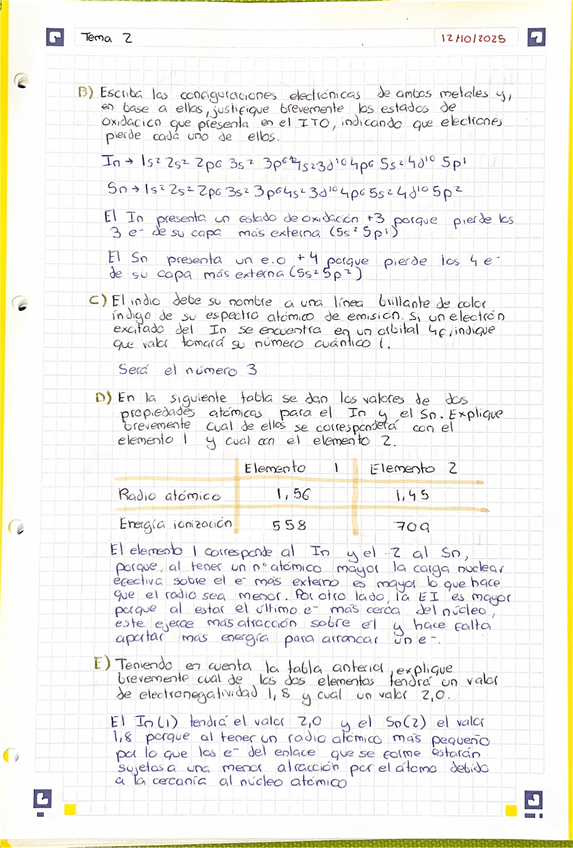 Tema 2
12/10/2025
B) Escriba las configuraciones electrónicas de ambos metales y,
en base a ellas, justifique brevemente los estados de
oxidación que presenta en el ITO, indicando que electrones
pierde cada uno de ellos.
In → 1s² 2s² 2p6 3s² 3p6 4s² 3d¹⁰ 4p6 5s² 4d¹⁰ 5p¹
Sn → 1s² 2s² 2p6 3s² 3p6 4s² 3d¹⁰ 4p6 5s² 4d¹⁰ 5p²
El In presenta un estado de oxidación +3 porque pierde los
3 e- de su capa más externa (5s² 5p¹)
El Sn presenta un e.o +4 porque pierde los 4 e-
de su capa más externa (5s² 5p²)
C) El indio debe su nombre a una línea brillante de color
índigo de su espectro atómico de emisión. Si un electrón
excitado del In se encuentra en un orbital 4f, indique
que valor tomará su número cuántico l.
Será el número 3
D) En la siguiente tabla se dan los valores de dos
propiedades atómicas para el In y el Sn. Explique
brevemente cual de ellos se corresponderá con el
elemento 1 y cual con el elemento 2.
Elemento 1 Elemento 2
Radio atómico 1,56 1,45
Energía ionización 558 709
El elemento 1 corresponde al In y el 2 al Sn,
porque, al tener un nº atómico mayor la carga nuclear
efectiva sobre el e- más externo es mayor lo que hace
que el radio sea menor. Por otro lado, la EI es mayor
porque al estar el último e- más cerca del núcleo,
este ejerce más atracción sobre el y hace falta
aportar más energía para arrancar un e-.
E) Teniendo en cuenta la tabla anterior, explique
brevemente cual de los dos elementos tendrá un valor
de electronegatividad 1,8 y cual un valor 2,0.
El In(1) tendrá el valor 2,0 y el Sn(2) el valor
1,8 porque al tener un radio atómico más pequeño
por lo que los e- del enlace que se forme estarán
sujetos a una menor atracción por el átomo debido
a la cercanía al núcleo atómico